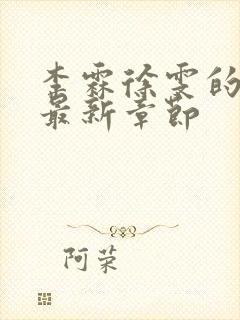 李霖徐雯的
最新章节
阿荣